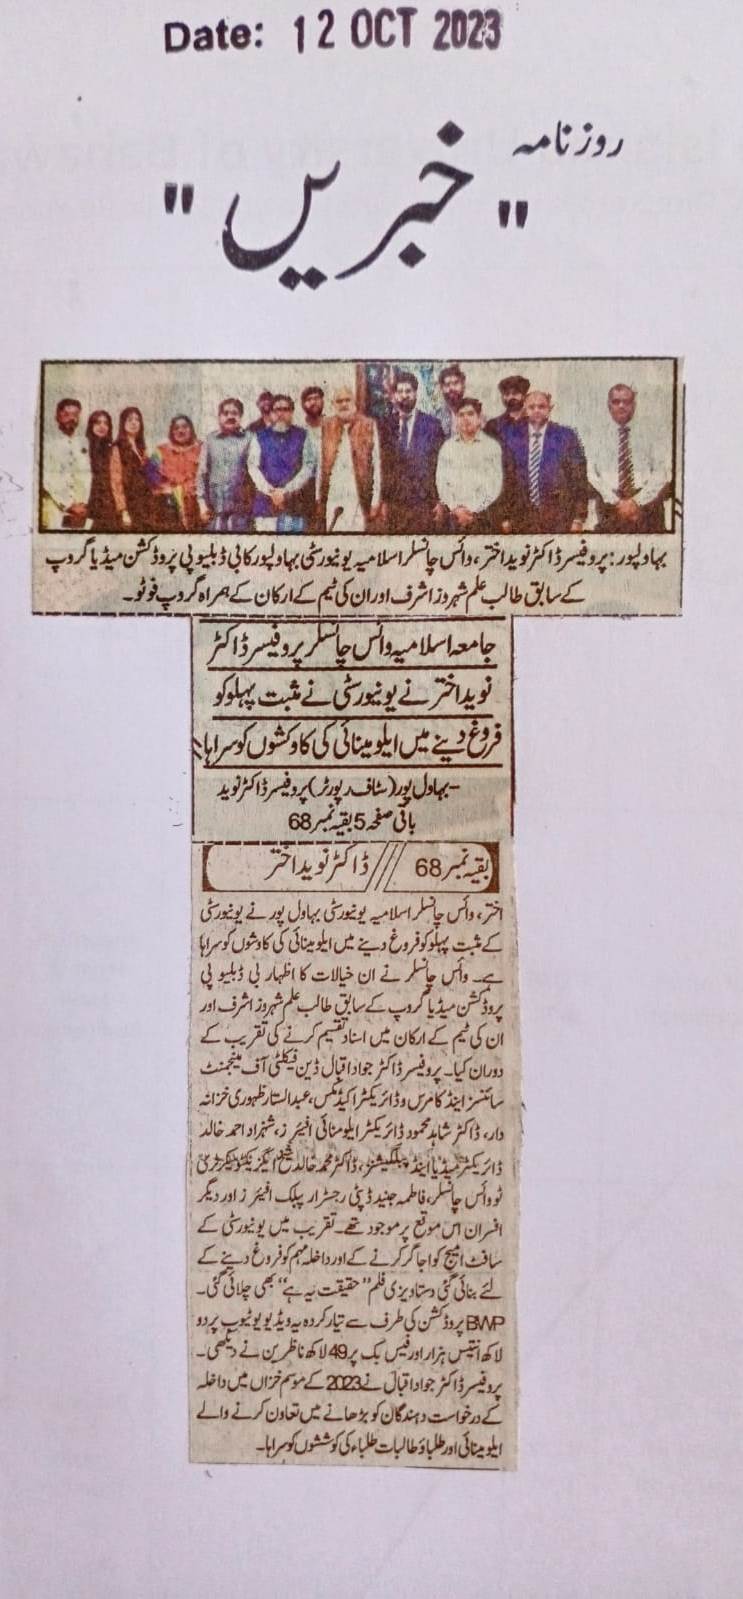 Date: 12 OCT 2023
روزنامہ
"خبریں"
بہاولپور: پروفیسر ڈاکٹر نوید اختر، وائس چانسلر اسلامیہ یونیورسٹی بہاولپور کا بی ڈبلیو پی پروڈکشن میڈیا گروپ
کے سابق طالب علم شہروز اشرف اور ان کی ٹیم کے ارکان کے ہمراہ گروپ فوٹو۔
جامعہ اسلامیہ وائس چانسلر پروفیسر ڈاکٹر
نوید اختر نے یونیورسٹی نے مثبت پہلو کو
فروغ دینے میں ایلومینائی کی کاوشوں کو سراہا
-بہاول پور (سٹاف رپورٹر) پروفیسر ڈاکٹر نوید
باقی صفحہ 5 بقیہ نمبر 68
بقیہ نمبر 68 /// ڈاکٹر نوید اختر
اختر، وائس چانسلر اسلامیہ یونیورسٹی بہاول پور نے یونیورسٹی
کے مثبت پہلو کو فروغ دینے میں ایلومینائی کی کاوشوں کو سراہا
ہے۔ وائس چانسلر نے ان خیالات کا اظہار بی ڈبلیو پی
پروڈکشن میڈیا گروپ کے سابق طالب علم شہروز اشرف اور
ان کی ٹیم کے ارکان میں اسناد تقسیم کرنے کی تقریب کے
دوران کیا۔ پروفیسر ڈاکٹر جواد اقبال ڈین فیکلٹی آف مینجمنٹ
سائنسز اینڈ کامرس و ڈائریکٹر اکیڈمکس، عبدالستار ظہوری خزانہ
دار، ڈاکٹر شاہد محمود ڈائریکٹر ایلومنائی افیئرز، شہزاد احمد خالد
ڈائریکٹر میڈیا اینڈ پبلکیشنز، ڈاکٹر محمد خالد ایگزیکٹو سیکرٹری
ٹو وائس چانسلر، فاطمہ جنید ڈپٹی رجسٹرار پبلک افیئرز اور دیگر
افسران اس موقع پر موجود تھے۔ تقریب میں یونیورسٹی کے
سافٹ امیج کو اجاگر کرنے کے اور داخلہ مہم کو فروغ دینے کے
لئے بنائی گئی دستاویزی فلم "حقیقت یہ ہے" بھی چلائی گئی۔
BWP پروڈکشن کی طرف سے تیار کردہ یہ ویڈیو یوٹیوب پر دو
لاکھ انتیس ہزار اور فیس بک پر 49 لاکھ ناظرین نے دیکھی۔
پروفیسر ڈاکٹر جواد اقبال نے 2023 کے موسم خزاں میں داخلہ
کے درخواست دہندگان کو بڑھانے میں تعاون کرنے والے
ایلومینائی اور طلباؤ طالبات طلباء کی کوششوں کو سراہا۔